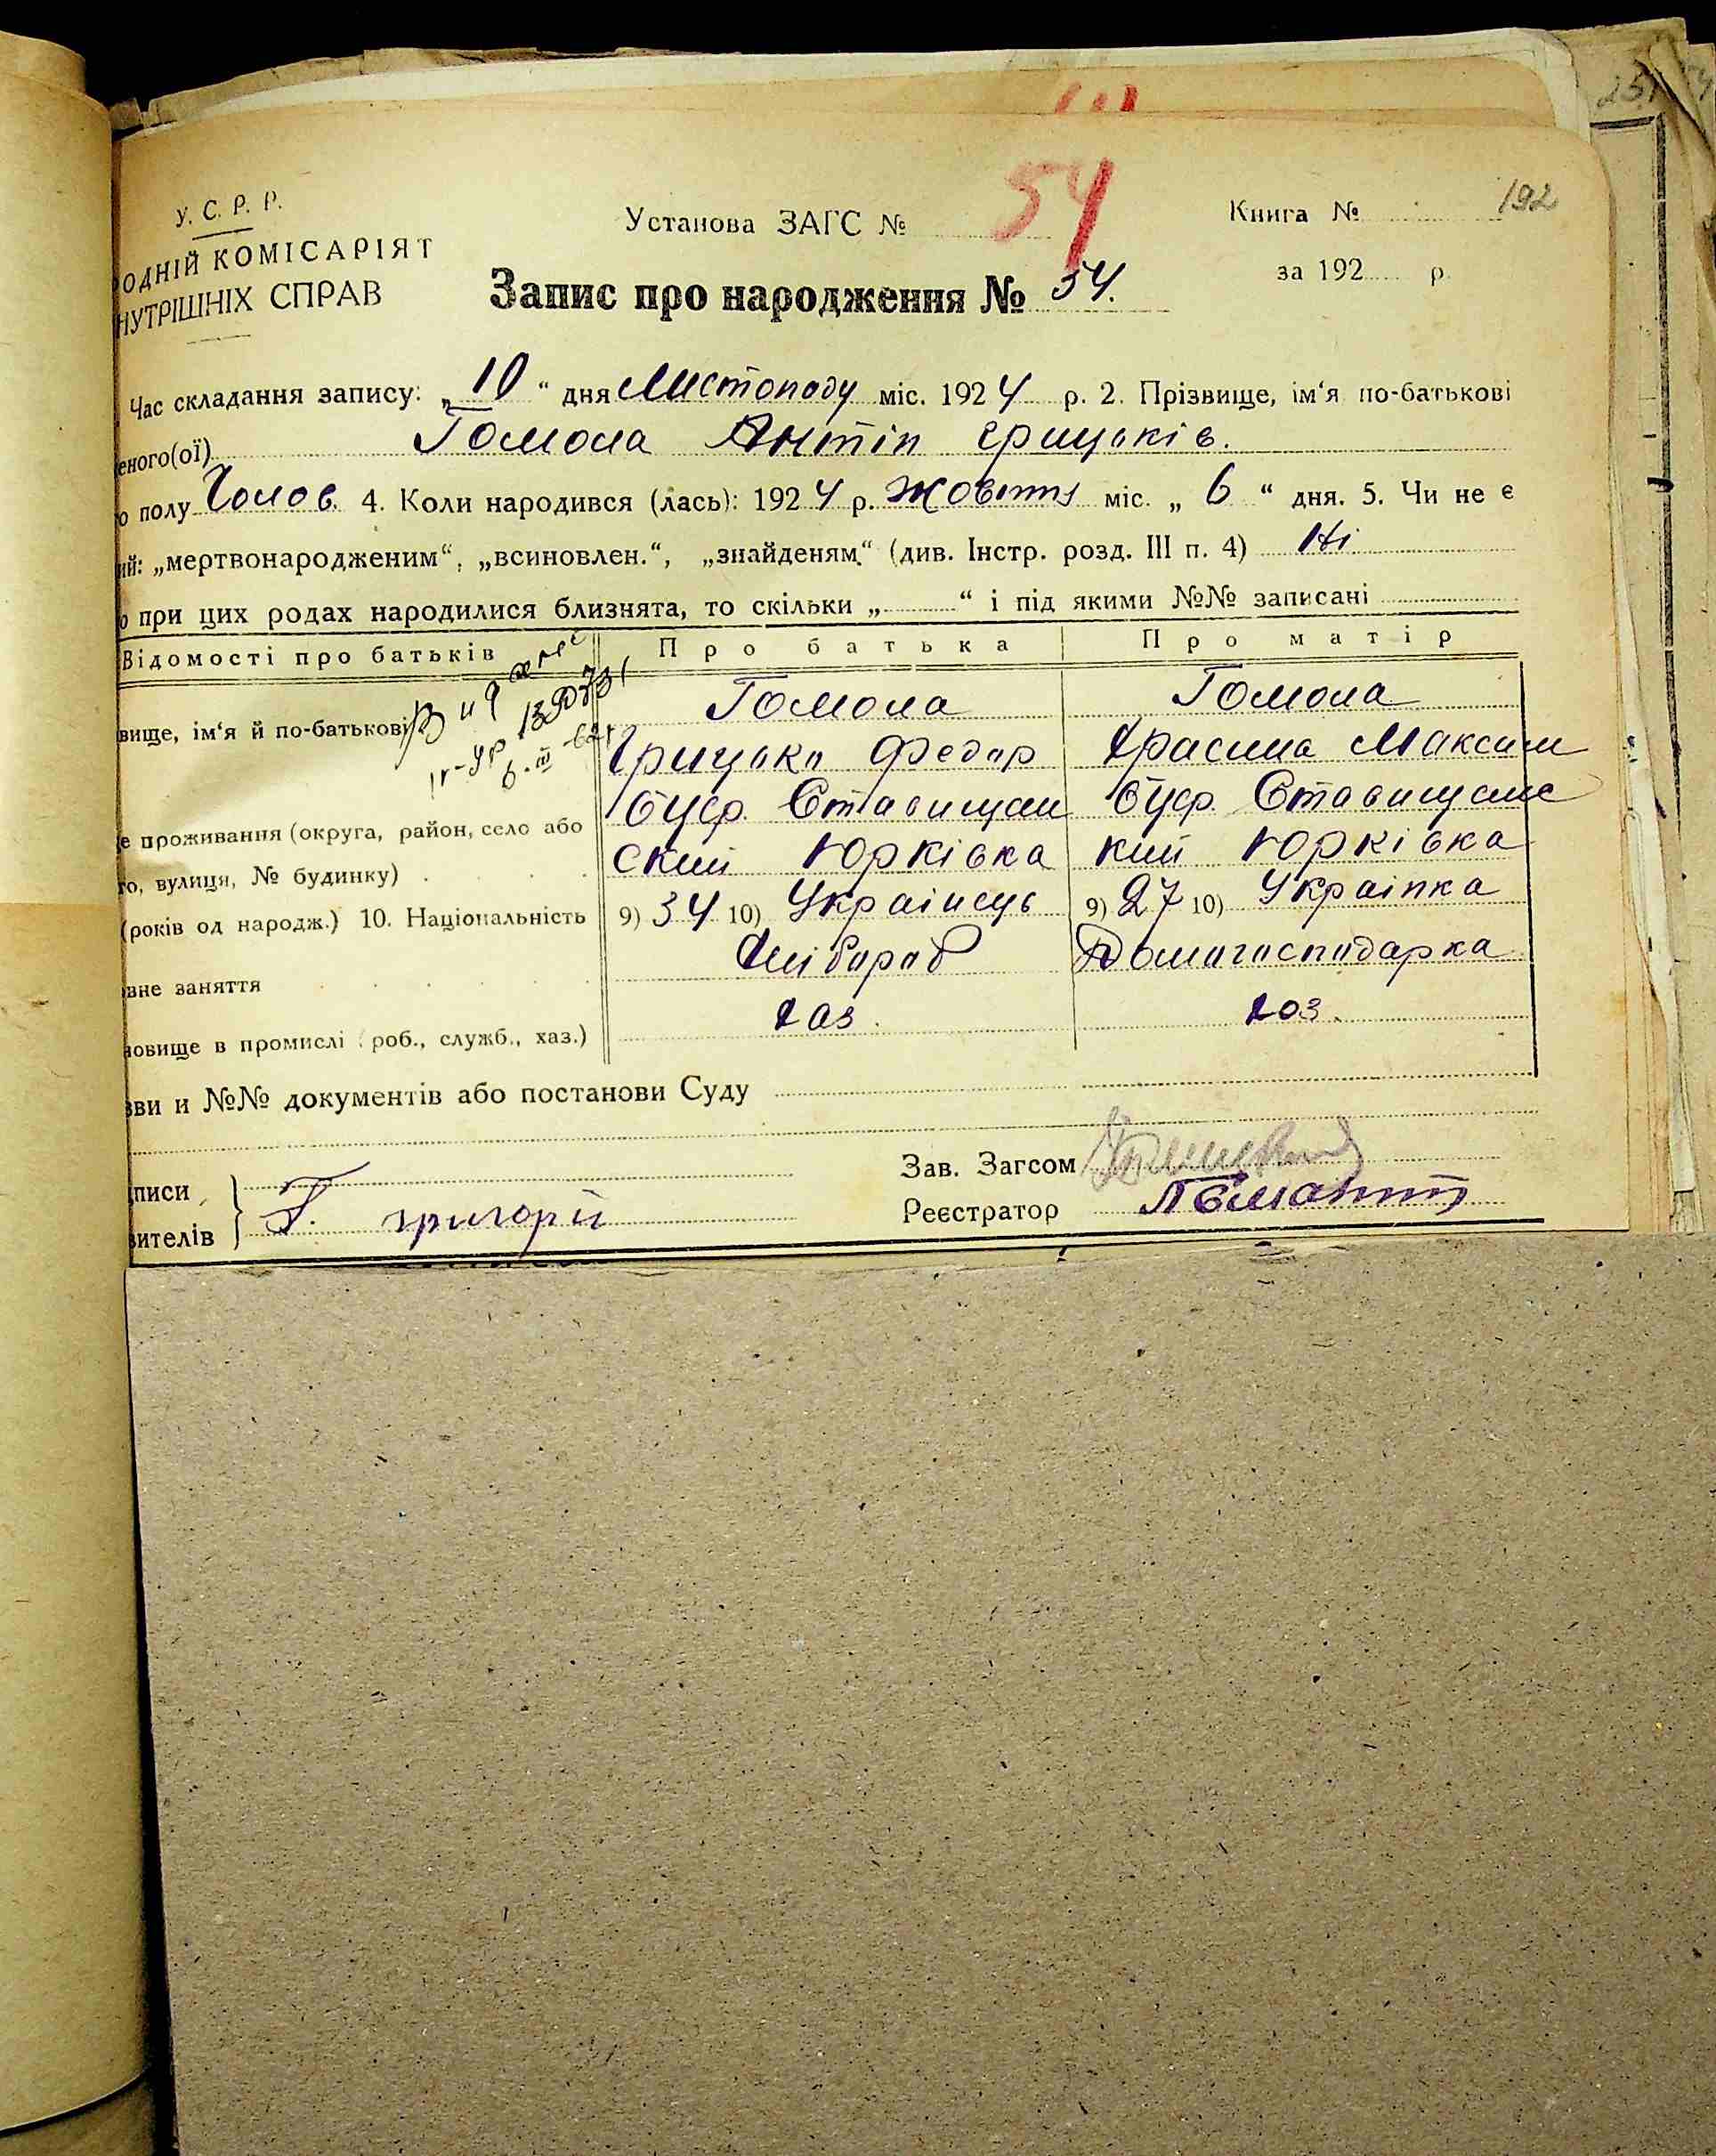 192
У. С. Р. Р.
Установа ЗАГС № 54
Книга №
ОДНІЙ КОМІСАРІЯТ
НУТРІШНІХ СПРАВ
за 192 р.
Запис про народження № 54.
Час складання запису: „10“ дня Листопаду міс. 1924 р. 2. Прізвище, ім‘я по-батькові
еного(ої) Гомола Антін Грицьків.
о полу Чолов. 4. Коли народився (лась): 1924 р. Жовтня міс. „ 6 “ дня. 5. Чи не є
ий: „мертвонародженим“, „всиновлен.“, „знайденям.“ (див. Інстр. розд. III п. 4) Ні
о при цих родах народилися близнята, то скільки „ “ і під якими №№ записані
Відомості про батьків Про батька Про матір
вище, ім‘я й по-батькові Гомола Гомола
Грицько Федор Максим
е проживання (округа, район, село або Бцер. Ставищан Бцер. Ставищанс
то, вулиця, № будинку) ский Юрківка кий Юрківка
(років од народж.) 10. Національність 9) 34 10) Українець 9) 27 10) Українка
вне заняття Хлібороб Домогосподарка
новище в промислі (роб., служб., хаз.) хаз. хоз.
зви и №№ документів або постанови Суду
Зав. Загсом
писи
вителів Г. григорій
Реєстратор